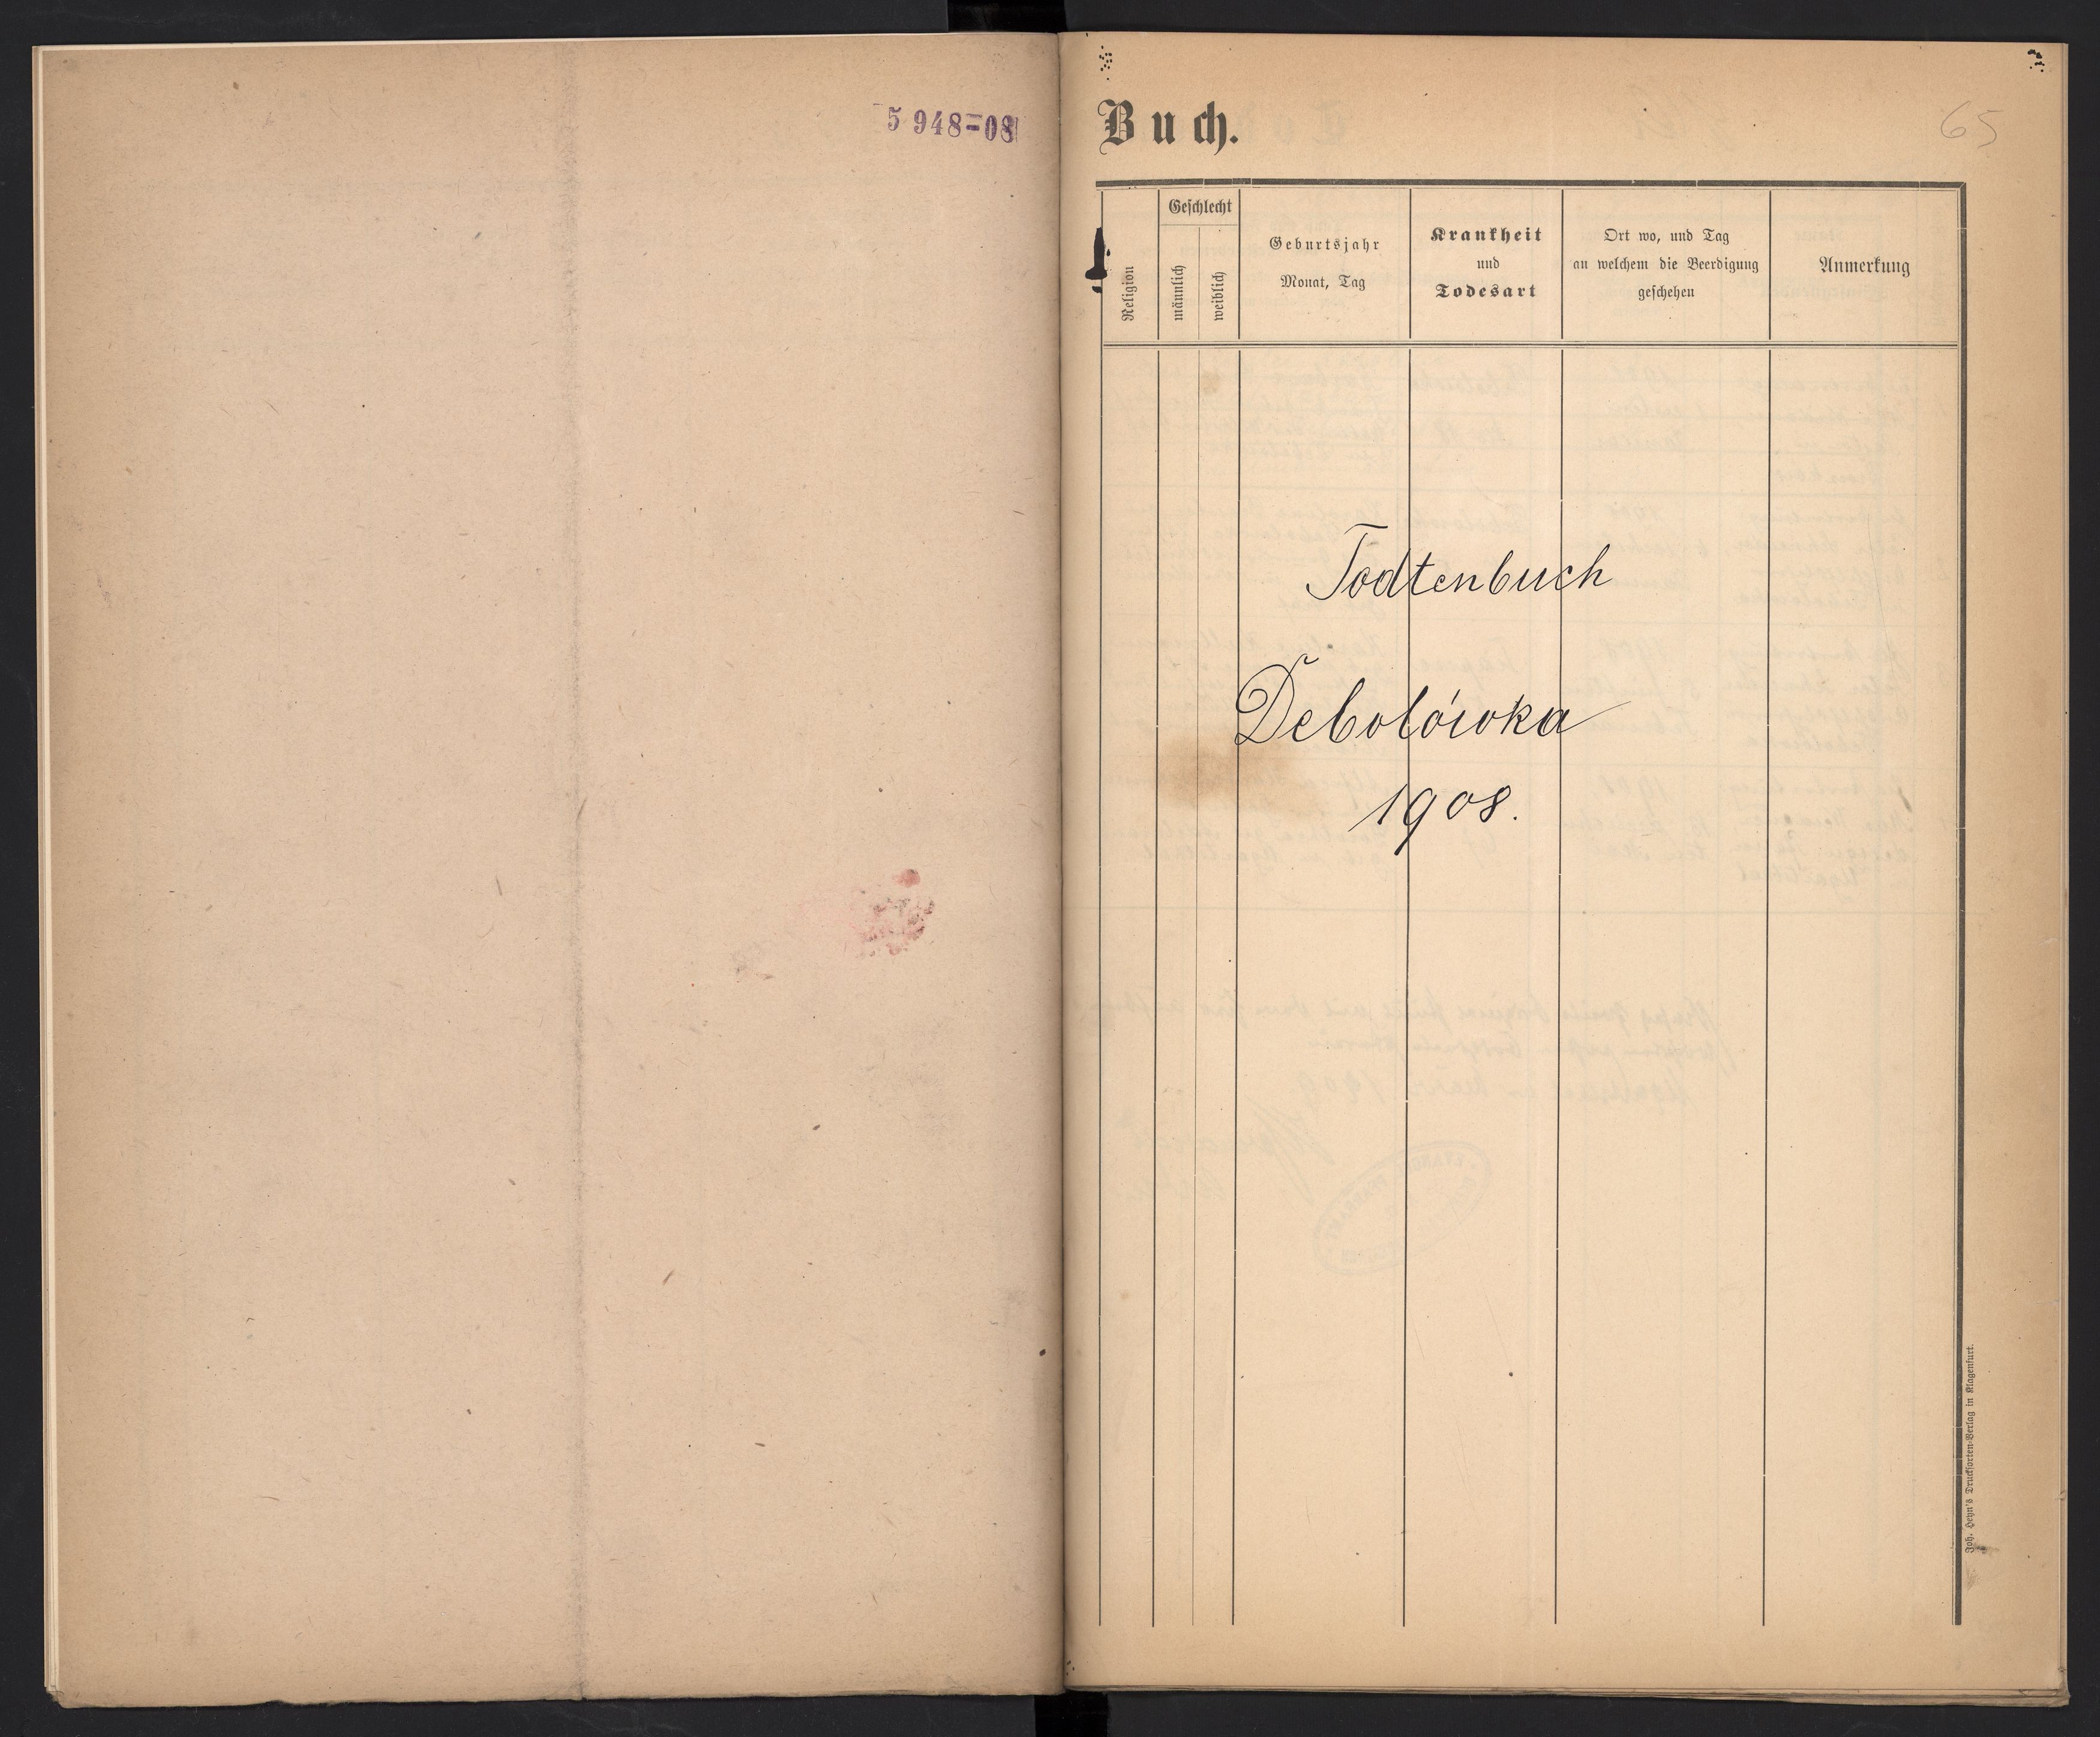 5 948-08
Buch.
65
Religion
Geschlecht
männlich
weiblich
Geburtsjahr
Monat, Tag
Krankheit
und
Todesart
Ort wo, und Tag
an welchem die Beerdigung
geschehen
Anmerkung
Todtenbuch
Debolówka
1908.
Joh. Heyn's Drucksorten-Verlag in Klagenfurt.